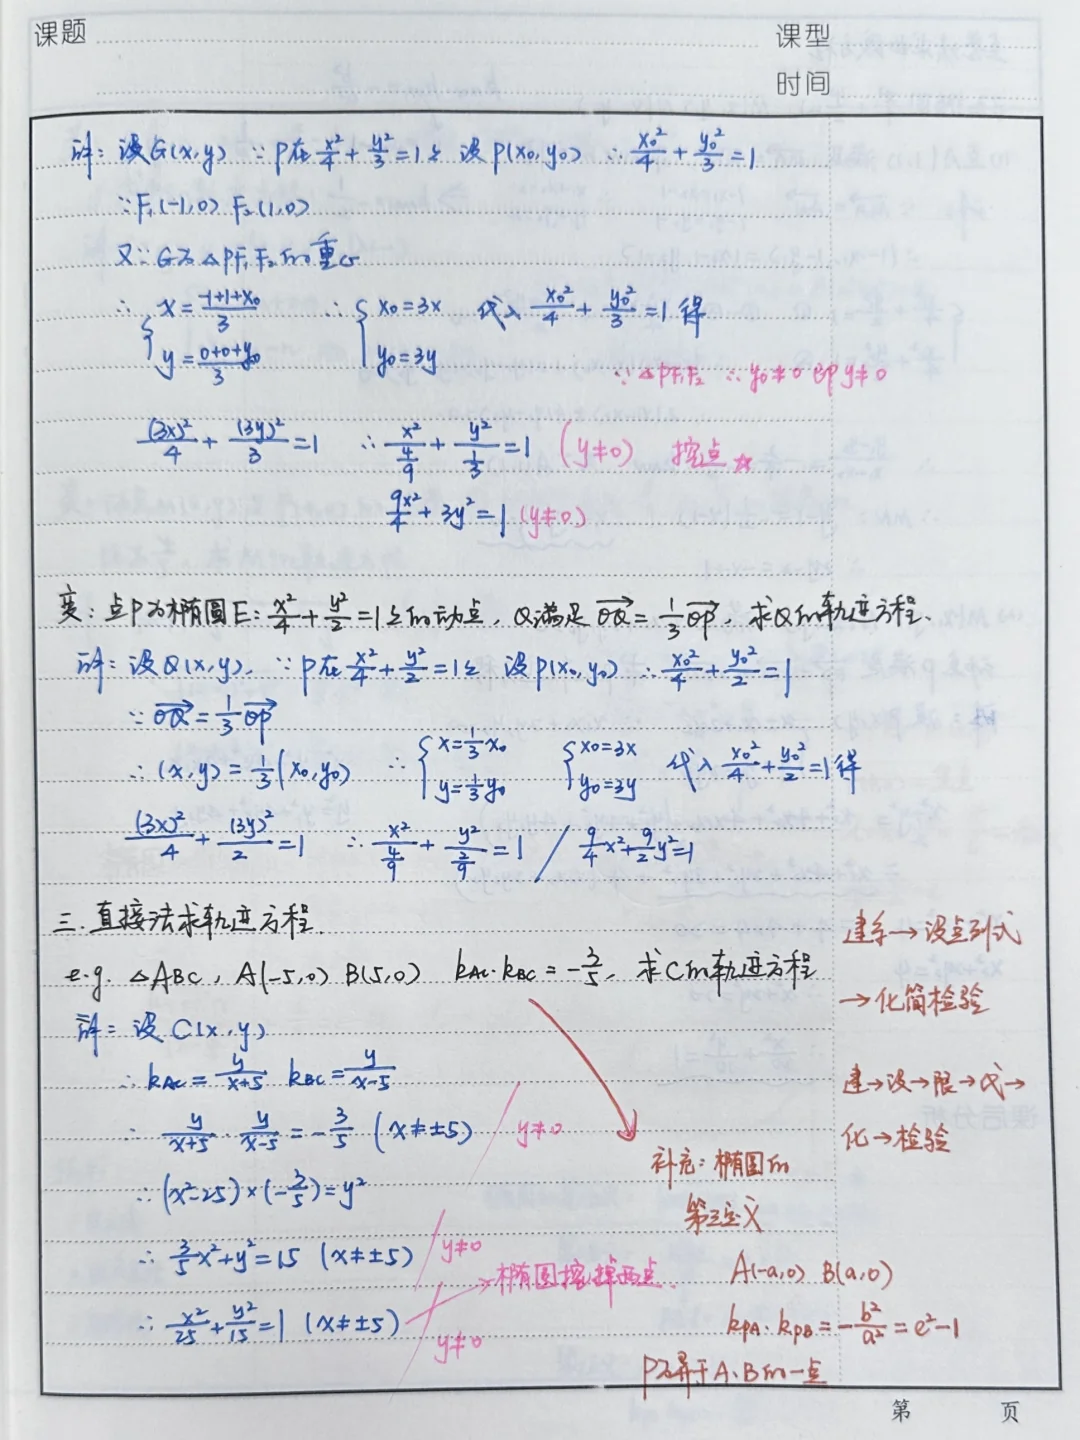 课题
课型
时间
解：设G(x,y) ∵P在x²/4+y²/3=1上 设P(x₀,y₀) ∴x₀²/4+y₀²/3=1
∵F₁(-1,0) F₂(1,0)
又∵G为△PF₁F₂的重心
∴{x=(-1+1+x₀)/3 y=(0+0+y₀)/3 ∴{x₀=3x y₀=3y 代入x₀²/4+y₀²/3=1得
∵△PF₁F₂ ∴y₀≠0即y≠0
(3x)²/4+(3y)²/3=1 ∴x²/(4/9)+y²/(1/3)=1 (y≠0) 挖点☆
9x²/4+3y²=1 (y≠0)
变：点P为椭圆E：x²/4+y²/2=1上的动点，Q满足→OQ=1/3→OP，求Q的轨迹方程.
解：设Q(x,y)，∵P在x²/4+y²/2=1上 设P(x₀,y₀) ∴x₀²/4+y₀²/2=1
∵→OQ=1/3→OP
∴(x,y)=1/3(x₀,y₀) ∴{x=1/3x₀ y=1/3y₀ {x₀=3x y₀=3y 代入x₀²/4+y₀²/2=1得
(3x)²/4+(3y)²/2=1 ∴x²/(4/9)+y²/(2/9)=1 / 9/4x²+9/2y²=1
三.直接法求轨迹方程.
e.g. △ABC，A(-5,0) B(5,0) kAC·kBC=-3/5，求C的轨迹方程
解：设C(x,y)
∴kAC=y/(x+5) kBC=y/(x-5)
∴y/(x+5)·y/(x-5)=-3/5 (x≠±5) / y≠0
∴(x²-25)×(-3/5)=y²
∴3/5x²+y²=15 (x≠±5) / y≠0
→椭圆挖掉两点.
∴x²/25+y²/15=1 (x≠±5) / y≠0
建系→设点列式
→化简检验
建→设→限→代→
化→检验
补充：椭圆的
第三定义
A(-a,0) B(a,0)
kPA·kPB=-b²/a²=e²-1
P为异于A、B的一点
第 页